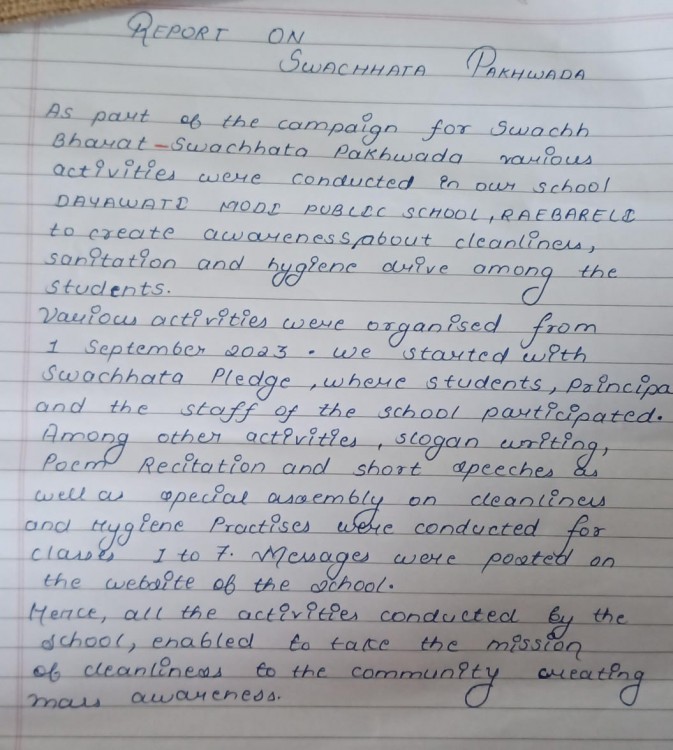 REPORT ON
SWACHHATA PAKHWADA
As part of the campaign for Swachh
Bharat-Swachhata Pakhwada various
activities were conducted in our school
DAYAWATI MODI PUBLIC SCHOOL, RAEBARELI
to create awareness, about cleanliness,
sanitation and hygiene drive among the
students.
Various activities were organised from
1 September 2023. We started with
Swachhata Pledge, where students, principa
and the staff of the school participated.
Among other activities, slogan writing,
Poem Recitation and short speeches as
well as special assembly on cleanliness
and Hygiene Practises were conducted for
classes 1 to 7. Messages were posted on
the website of the school.
Hence, all the activities conducted by the
school, enabled to take the mission
of cleanliness to the community creating
mass awareness.